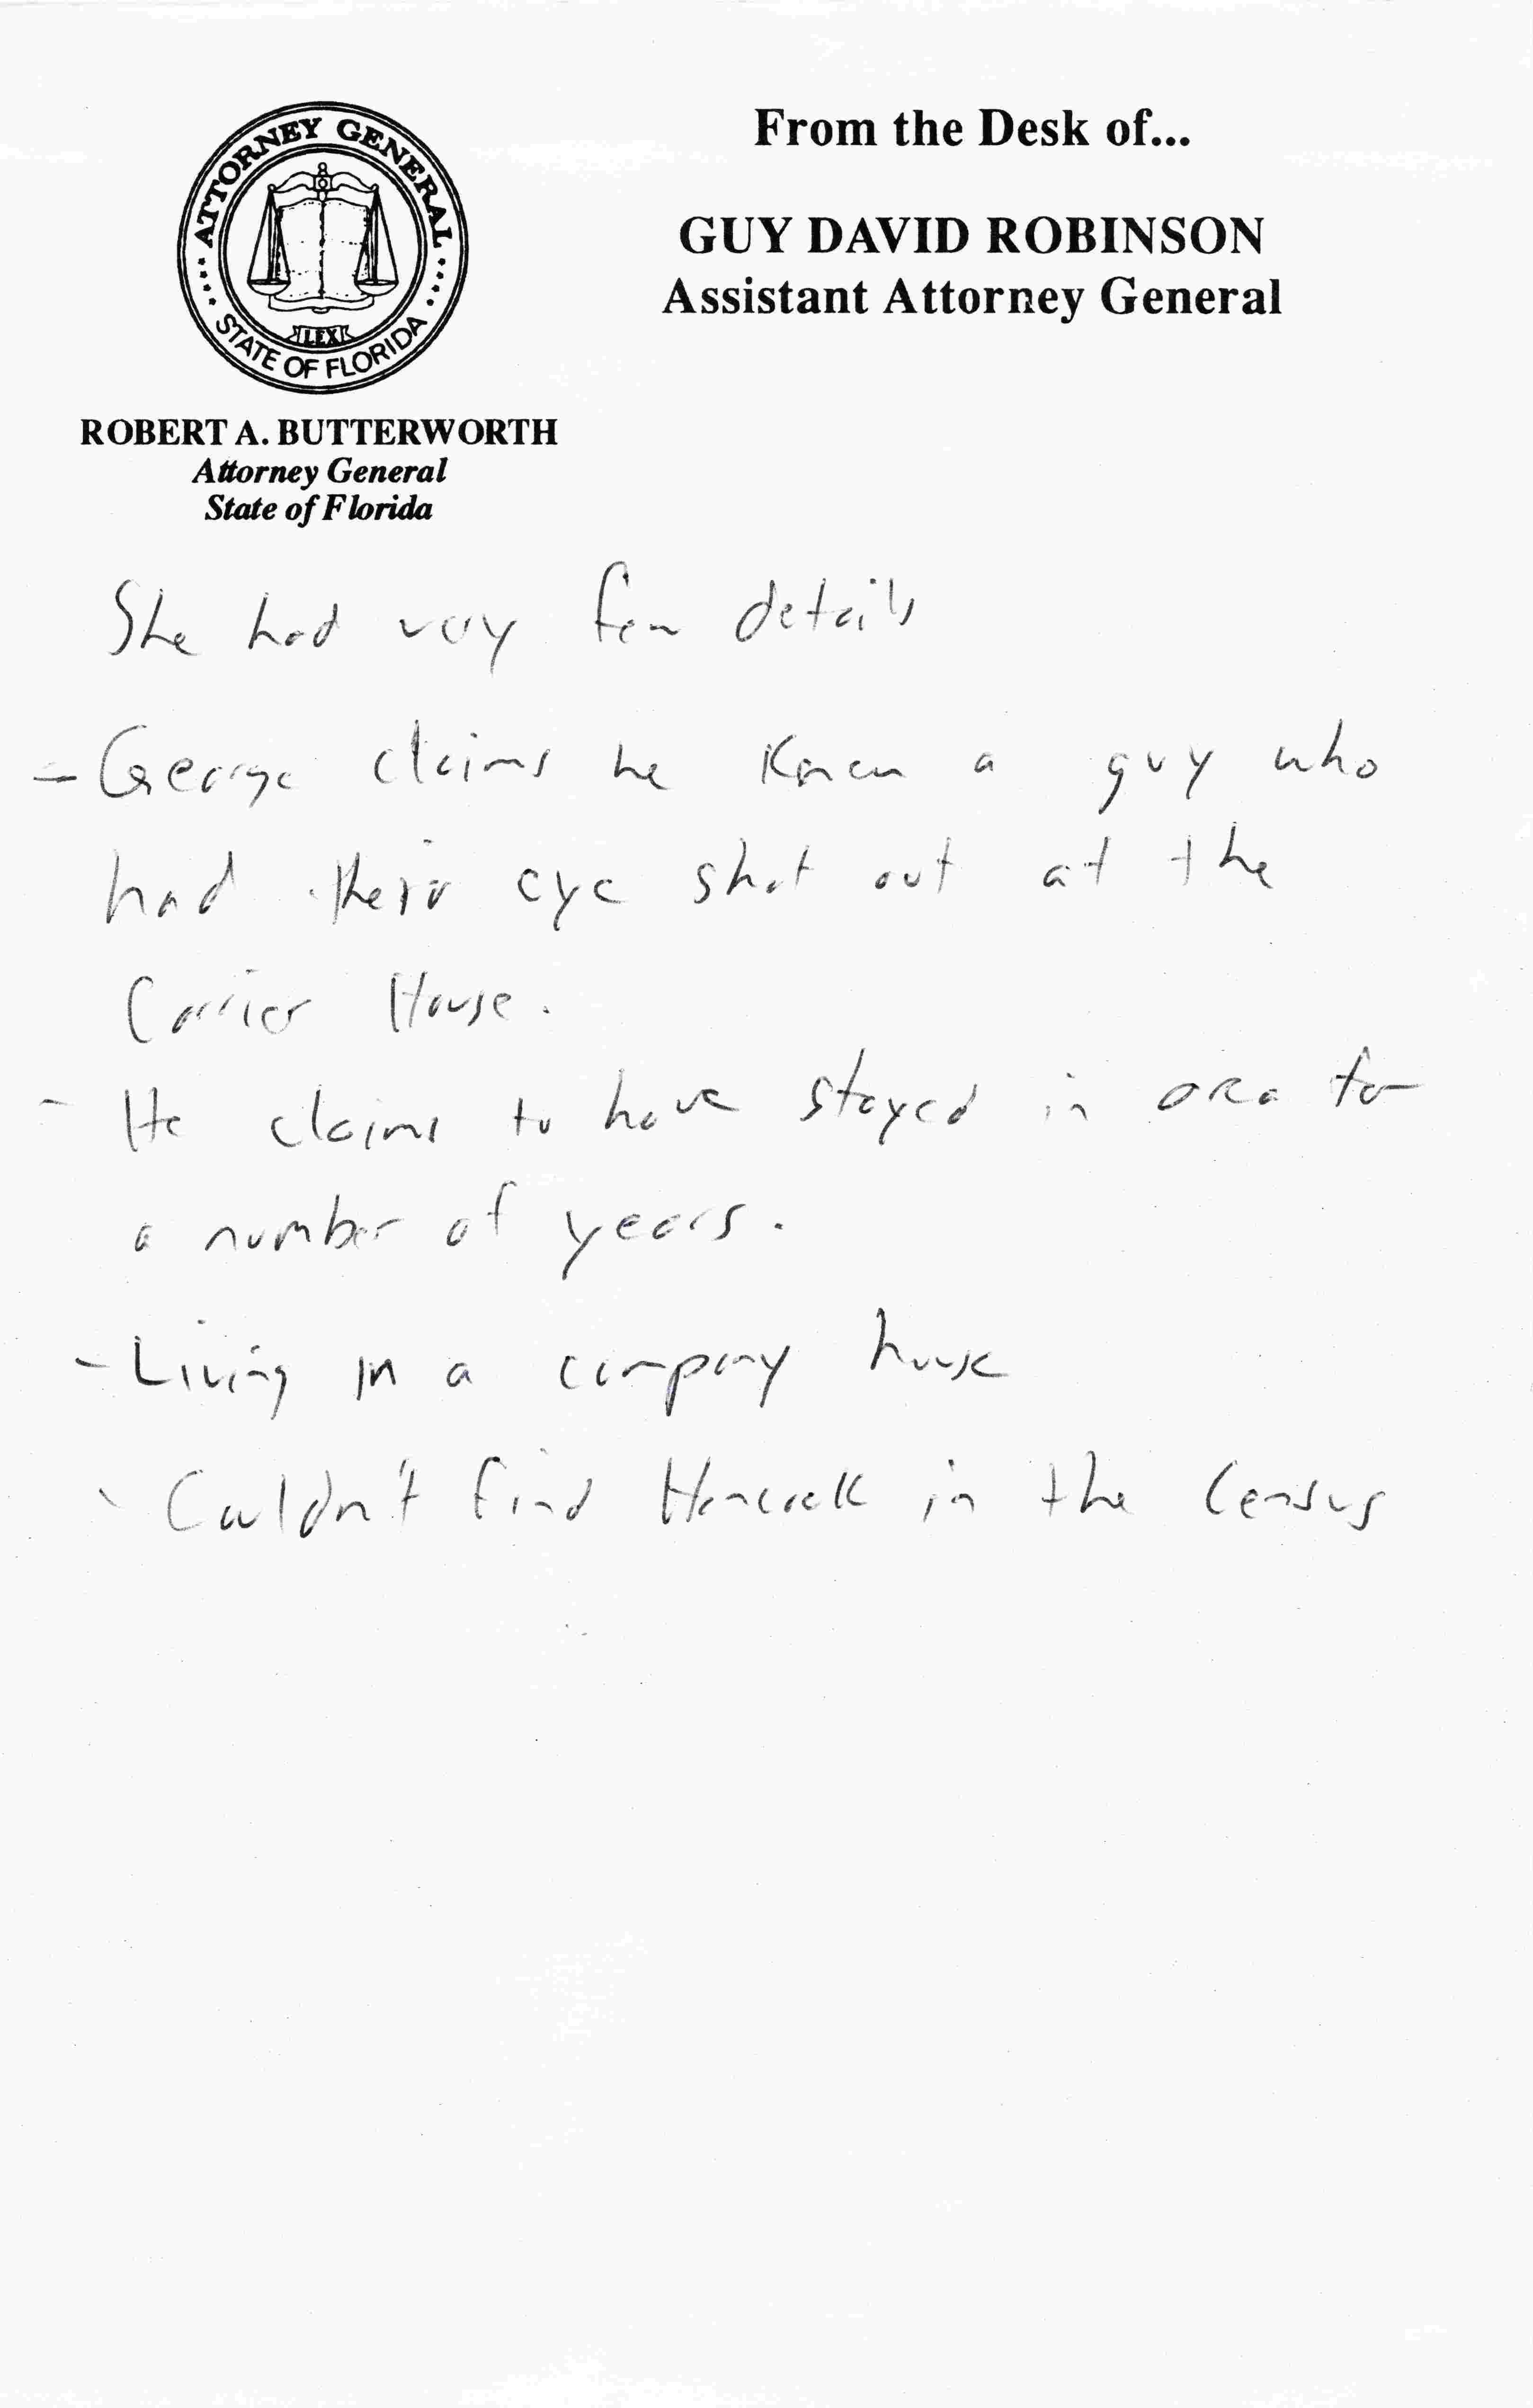 ATTORNEY GENERAL
STATE OF FLORIDA
LEX
From the Desk of...
GUY DAVID ROBINSON
Assistant Attorney General
ROBERT A. BUTTERWORTH
Attorney General
State of Florida
She had very few details
- George claims he knew a guy who
had their eye shot out at the
Carrier House.
- He claims to have stayed in area for
a number of years.
- Living in a company house
- Couldn't find Hancock in the Census